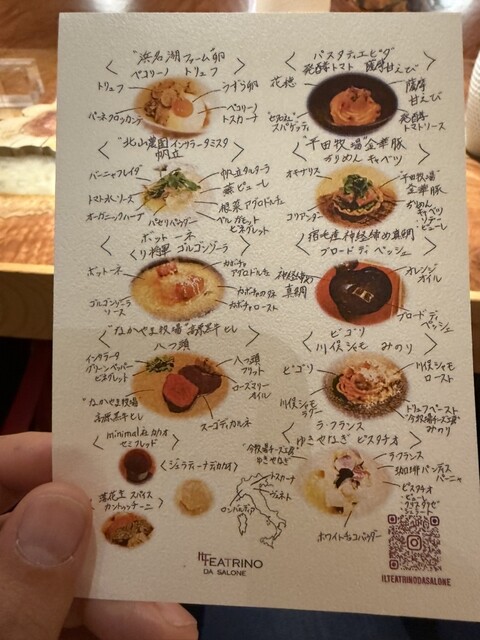 "浜名湖ファーム"卵
ペコリーノ トリュフ
トリュフ
うずら卵
パーネフロッカンテ
ペコリーノ
トスカーナ
パスタディエビダ
発酵トマト 薩摩甘えび
花穂
薩摩
甘えび
スパゲッティ
発酵
トマトソース
"北山農園"インサラータミスタ
帆立
パーニャフレイダ
帆立タルターラ
トマト水ソース
蕪ピューレ
オーガニックハーブ
根菜アグロドルチェ
パセリパウダー
ベルガモット
ビネグレット
"平田牧場"金華豚
かりめん キャベツ
オキナワス
"平田牧場"
金華豚
コリアンダー
かりめん
キャベツ
ソテー
ピューレ
ボットーネ
くり将軍 ゴルゴンゾーラ
ボットーネ
カボチャ
アグロドルチェ
ゴルゴンゾーラ
ソース
カボチャのタネ
カボチャロースト
神経締め真鯛
ブロード ディ ペッシェ
神経締め
真鯛
オレンジ
オイル
ブロード ディ
ペッシェ
"なかやま牧場"高原黒牛ヒレ
八つ頭
インサラータ
グリーンペッパー
ビネグレット
八つ頭
フリット
ローズマリー
オイル
"なかやま牧場"
高原黒牛ヒレ
スーゴディカルネ
ピゴリ
川俣シャモ みのり
ピゴリ
川俣シャモ
ロースト
川俣シャモ
ラグー
トリュフペースト
"今牧場チーズ工房"
みのり
minimal カカオ
セミフレッド
ジェラティーナ デカカオ
落花生 スパイス
カントゥッチーニ
トスカーナ
ヴェネト
ロンバルディア
ラ・フランス
ゆきやなぎ ピスタチオ
"今牧場チーズ工房"
ゆきやなぎ
ラ・フランス
珈琲パンディス
パーニャ
ピスタチオ
ピューレ
ホワイトチョコパウダー
IL TEATRINO
DA SALONE
ILTEATRINODASALONE